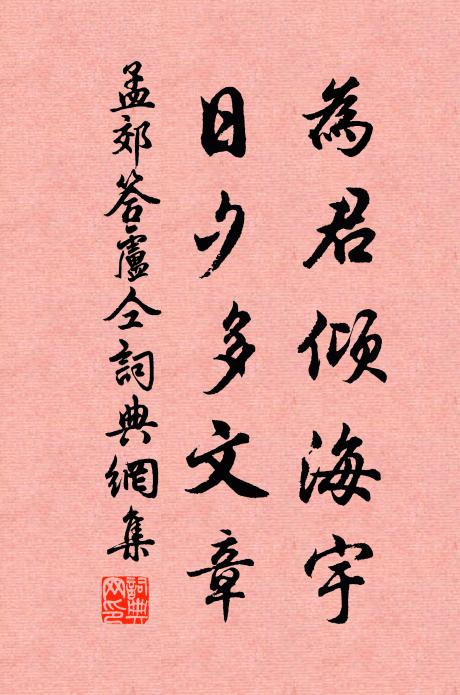 為君傾海宇
日夕多文章
孟郊答盧仝詞典網集
詞典網印